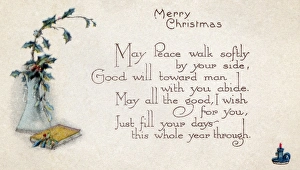 Merry
Christmas
May Peace walk softly
by your side,
Good will toward man
with you abide.
May all the good, I wish
for you,
Just fill your days—
this whole year through.